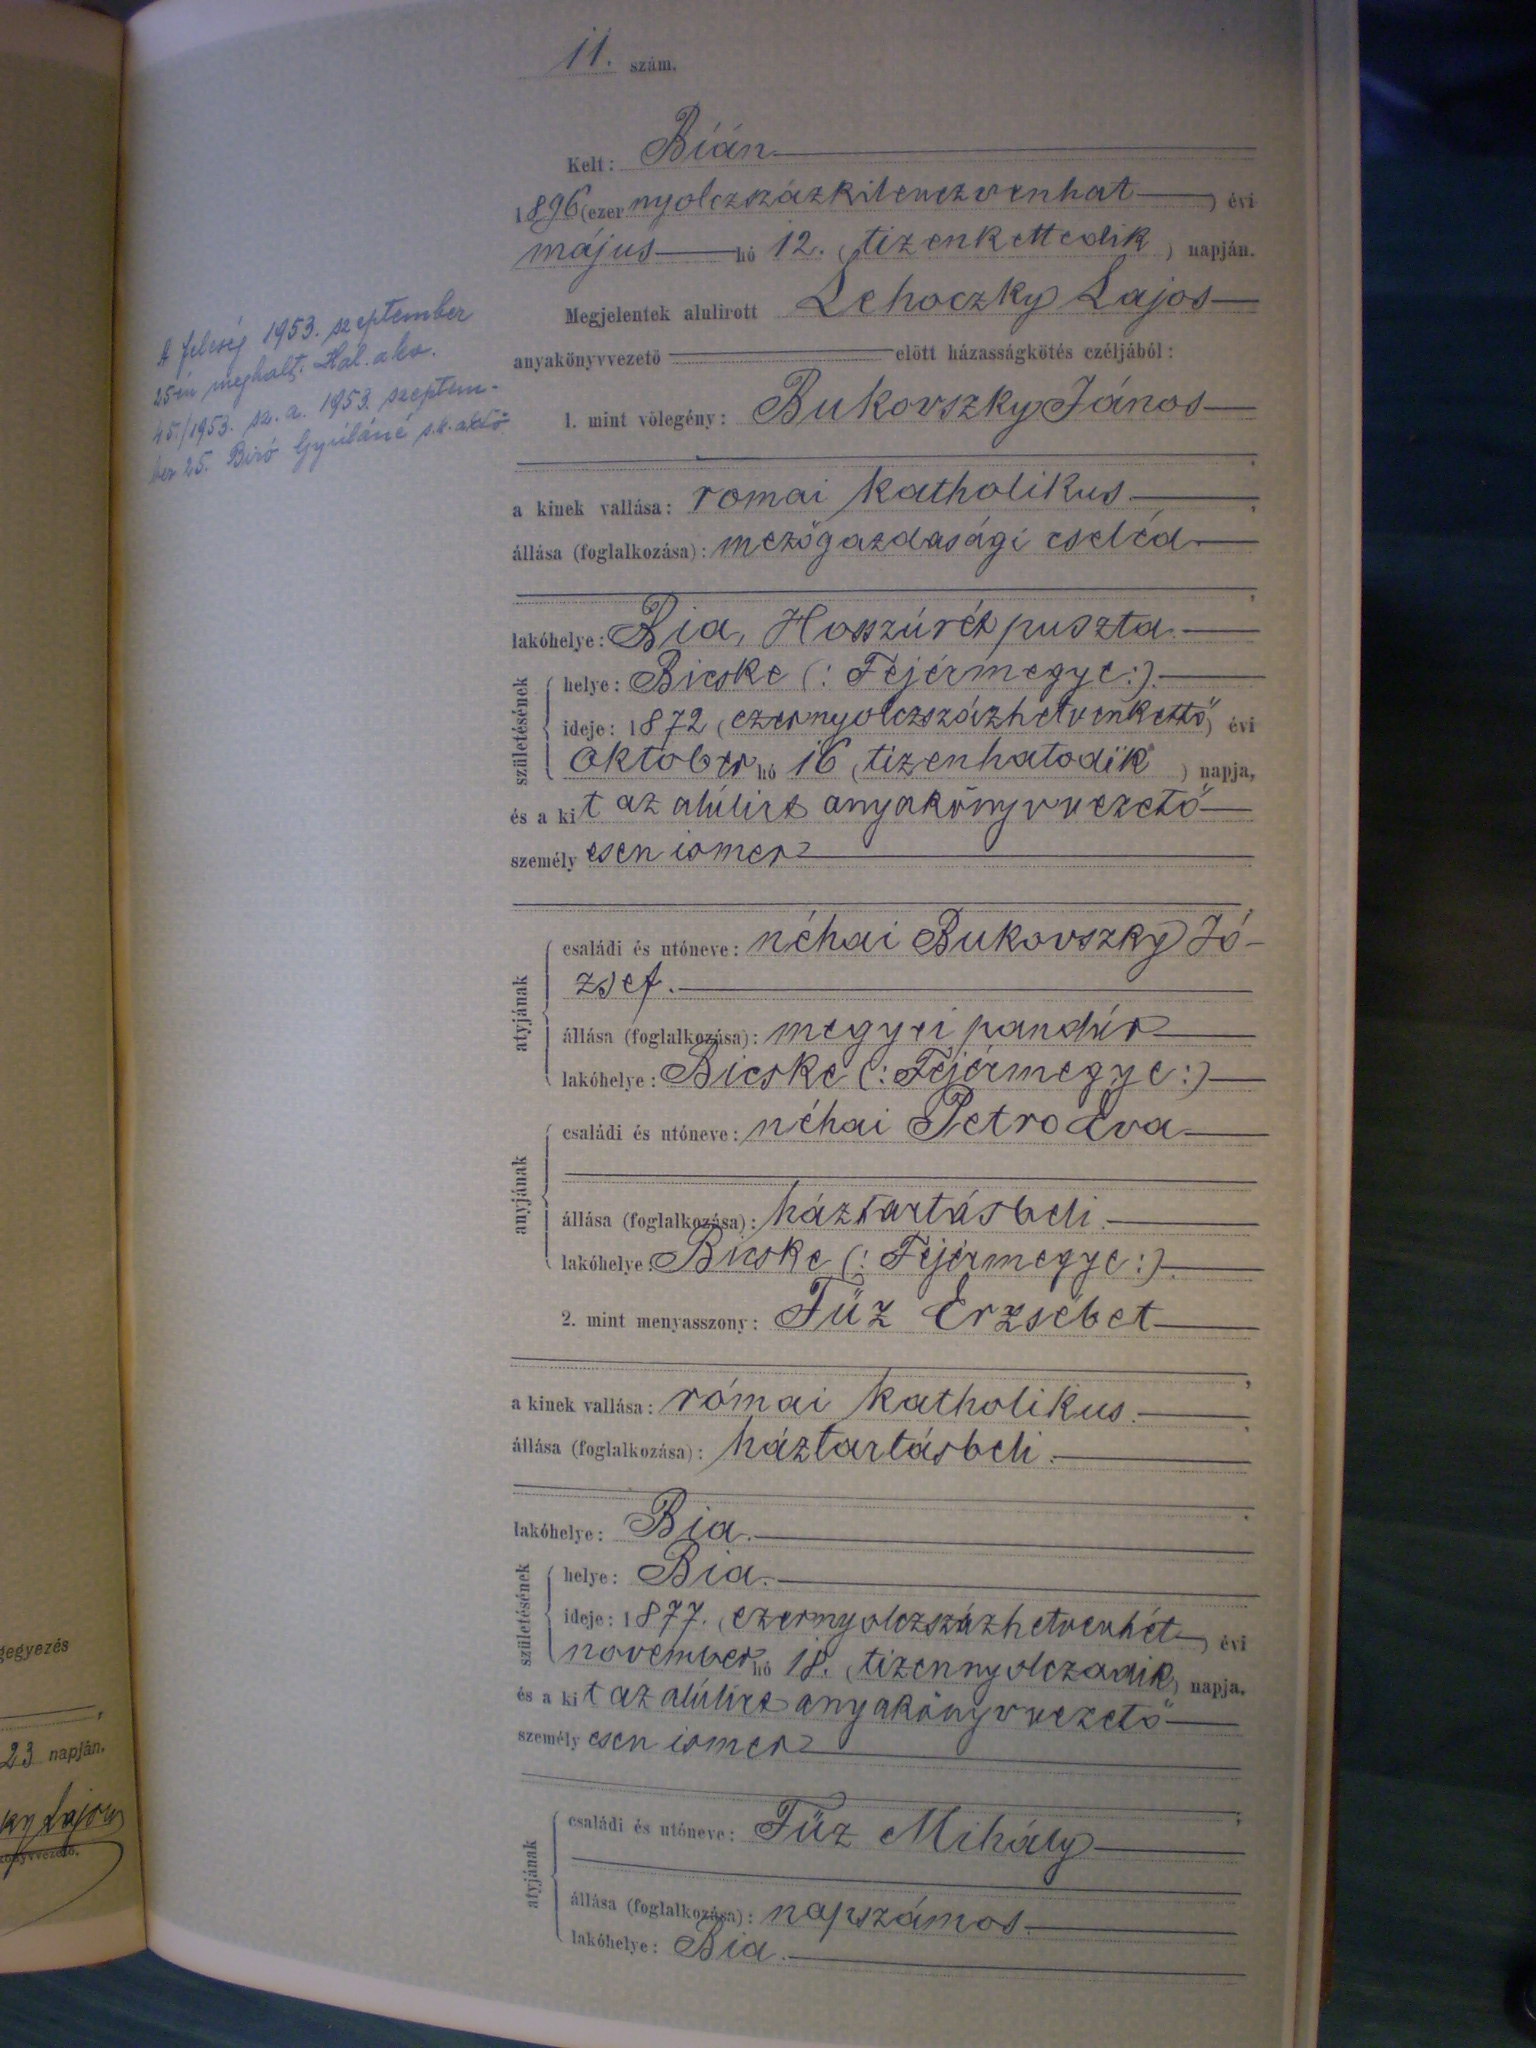 11. szám.
Kelt: Bián
1896 (ezer nyolczszázkilenczvenhat ) évi
május hó 12. (tizenkettedik ) napján.
Megjelentek alulirott Lehoczky Lajos
anyakönyvvezető előtt házasságkötés czéljából:
1. mint vőlegény: Bukovszky János
a kinek vallása: romai katholikus
állása (foglalkozása): mezőgazdasági cseléd
lakóhelye: Bia, Hosszúrét puszta.
születésének
helye: Bicske (: Fejérmegye:).
ideje: 1872 (ezernyolczszázhetvenkettő) évi
október hó 16 (tizenhatodik ) napja,
és a kit az alúlirt anyakönyvvezető
személyesen ismer
atyjának
családi és utóneve: néhai Bukovszky Jó-
zsef.
állása (foglalkozása): megyei pandúr
lakóhelye: Bicske (: Fejérmegye:)
anyjának
családi és utóneve: néhai Petro Éva
állása (foglalkozása): háztartásbeli.
lakóhelye: Bicske (: Fejérmegye:).
2. mint menyasszony: Fűz Erzsébet
a kinek vallása: római katholikus.
állása (foglalkozása): háztartásbeli.
lakóhelye: Bia.
születésének
helye: Bia.
ideje: 1877. (ezernyolczszázhetvenhét ) évi
november hó 18. (tizennyolczadik) napja,
és a kit az alúlirt anyakönyvvezető
személyesen ismer
atyjának
családi és utóneve: Fűz Mihály
állása (foglalkozása): napszámos.
lakóhelye: Bia.
A feleség 1953. szeptember
25-én meghalt. Hal. akv.
45/1953. sz. a. 1953. szeptem-
ber 25. Biró Gyuláné s.k.
gegyezés
23 napján.
ky Lajos
könyvvezető.